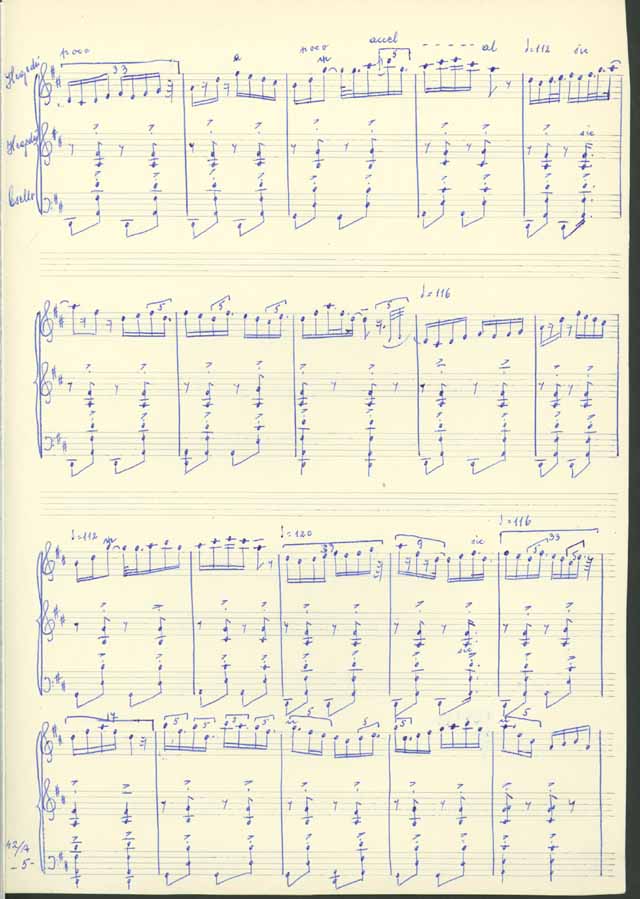 poco poco accel - - - - - - al ♩=112 sic
33 5
Hegedű
Hegedű sic
Cselló
5 5 5 5
♩=116
♩=112 ♩=120 sic ♩=116
33 9 33
5 5
sic
17 5 5 5 5 5 5 5 5
42/A
- 5 -